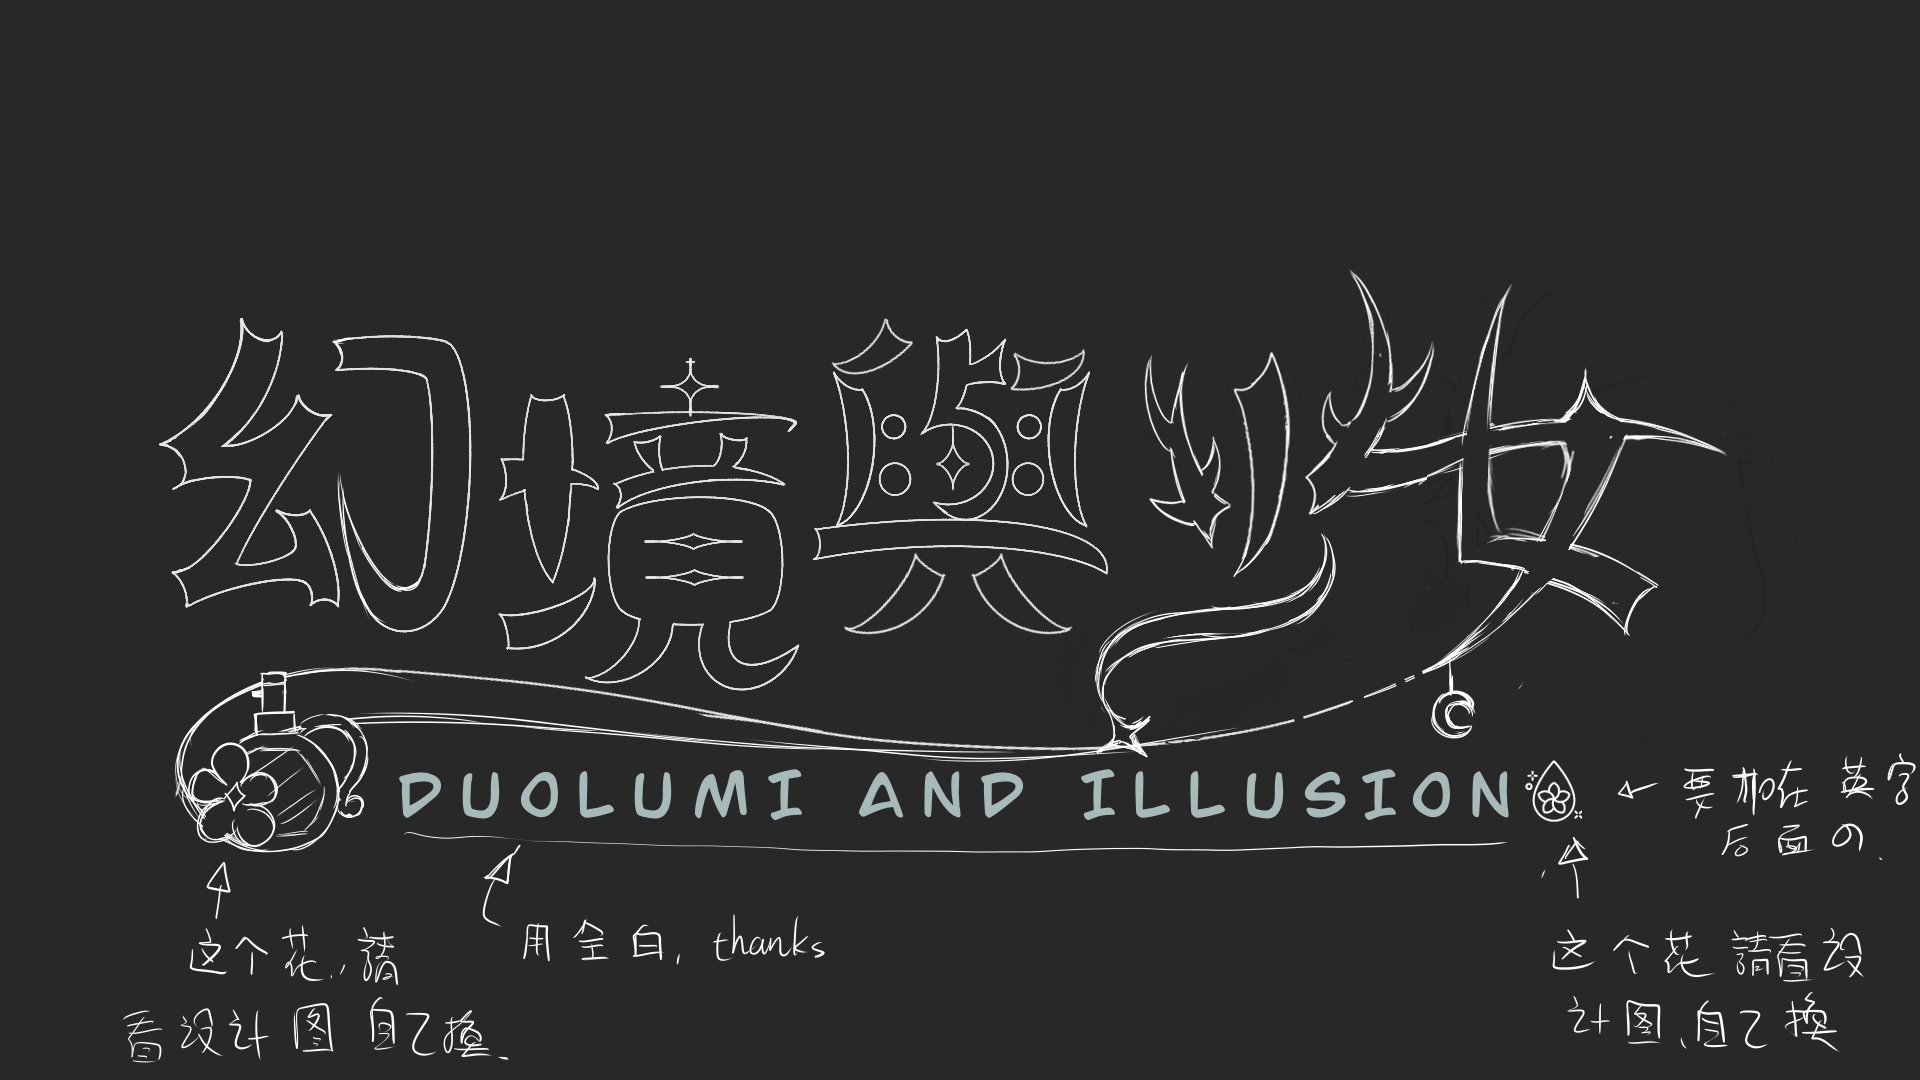 幻境與少女
DUOLUMI AND ILLUSION
要加在 英字
后面的.
这个花, 請
看设计图 自己換.
用全白, thanks
这个花 請看设
计图, 自己換